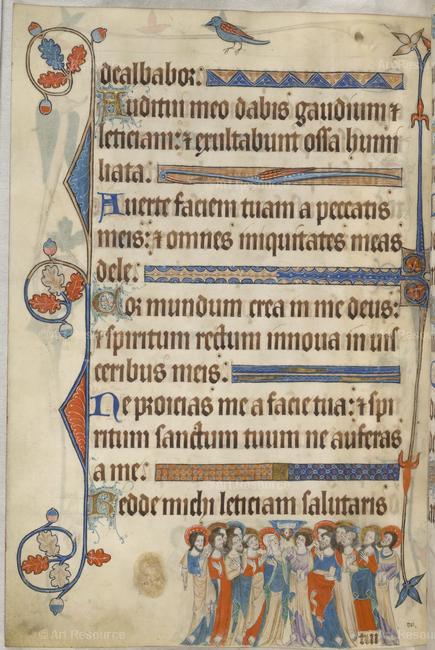 dealbabor:
Auditui meo dabis gaudium ⁊
leticiam: ⁊ exultabunt ossa humi
liata.
Auerte faciem tuam a peccatis
meis: ⁊ omnes iniquitates meas
dele.
Cor mundum crea in me deus:
⁊ spiritum rectum innoua in uis
ceribus meis.
Ne proicias me a facie tua: ⁊ spi
ritum sanctum tuum ne auferas
a me.
Redde michi leticiam salutaris
© Art Resource
© Art Resource